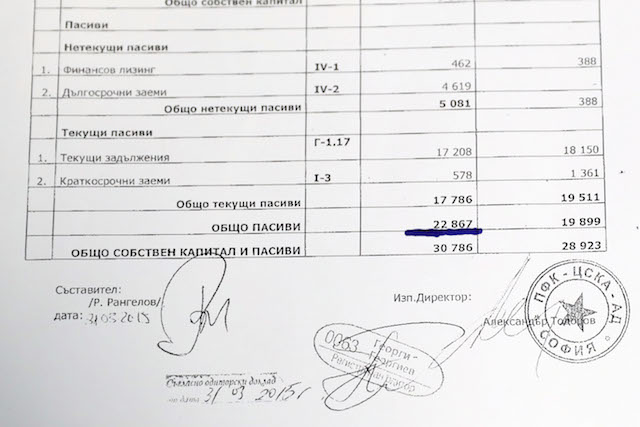 Общо собствен капитал
Пасиви
Нетекущи пасиви
1. Финансов лизинг IV-1 462 388
2. Дългосрочни заеми IV-2 4 619
Общо нетекущи пасиви 5 081 388
Текущи пасиви
Г-1.17
1. Текущи задължения 17 208 18 150
2. Краткосрочни заеми I-3 578 1 361
Общо текущи пасиви 17 786 19 511
ОБЩО ПАСИВИ 22 867 19 899
ОБЩО СОБСТВЕН КАПИТАЛ И ПАСИВИ 30 786 28 923
Съставител:
/Р. Рангелов/
дата: 31.03.2015
Изп.Директор:
Александър Тодоров
ПФК - ЦСКА - АД
СОФИЯ
0063 Георги
Георгиев
Регистриран одитор
Съгласно одиторски доклад
31 03 2015 г.